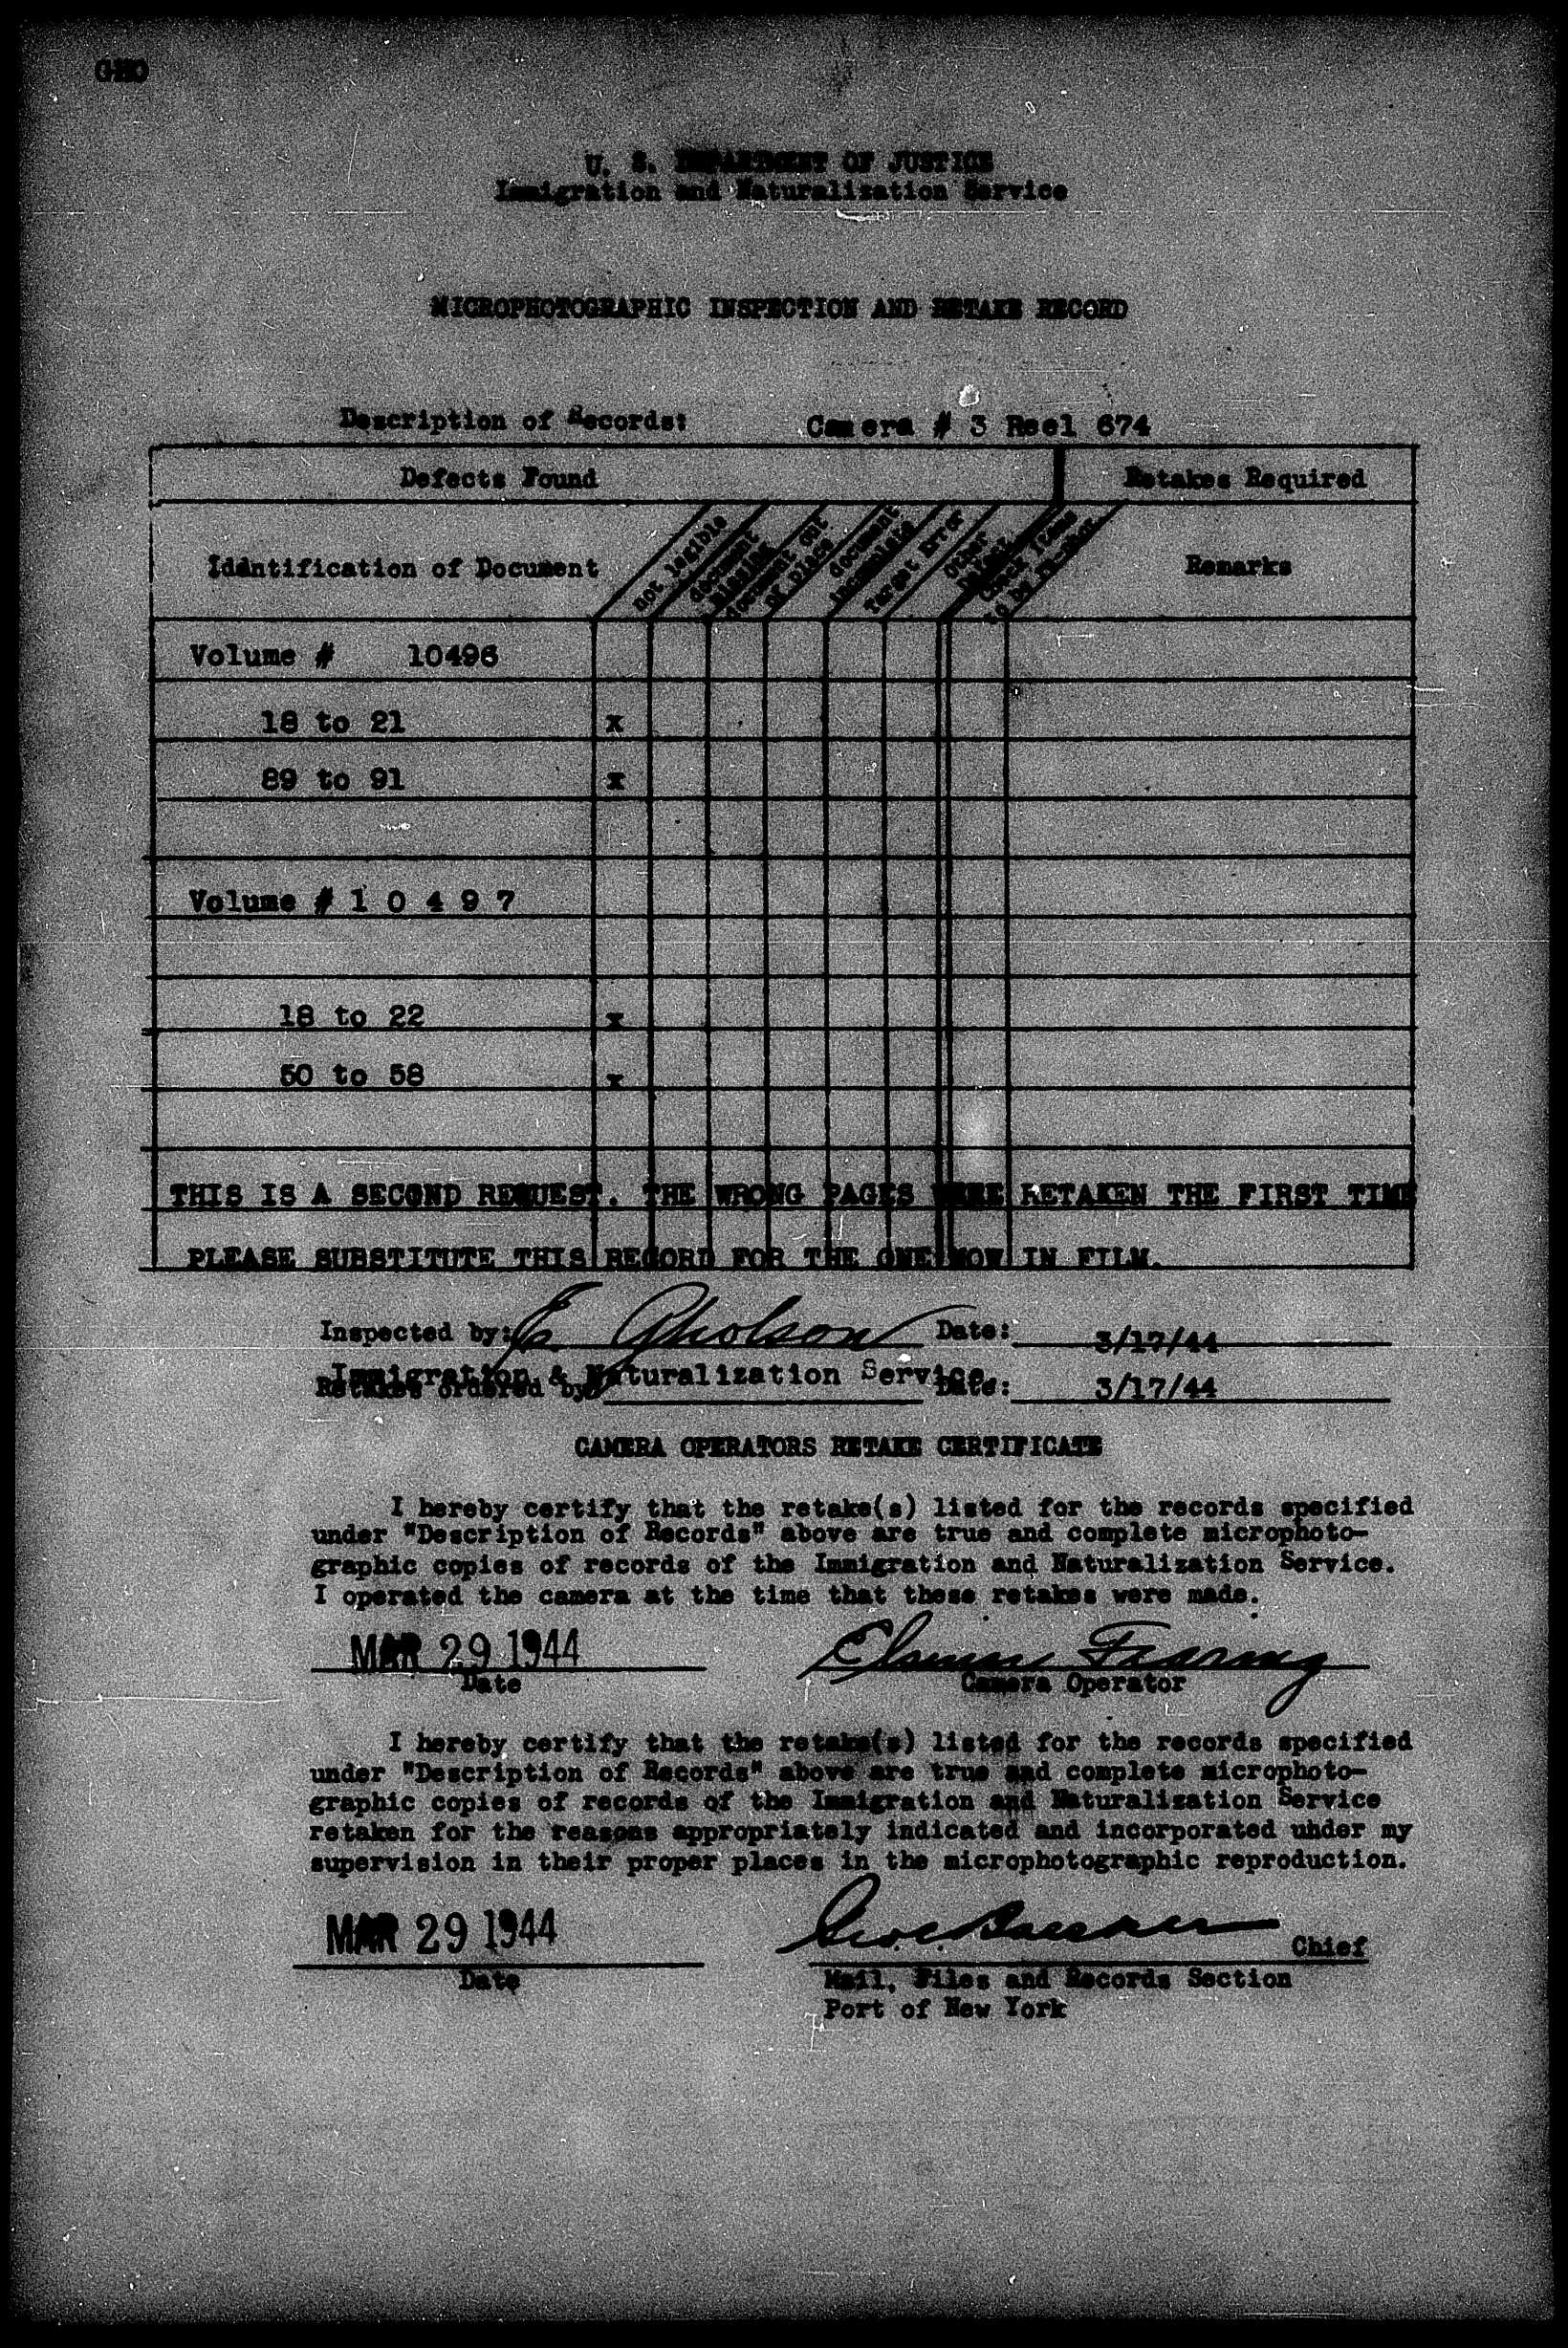 U. S. DEPARTMENT OF JUSTICE
Immigration and Naturalization Service
MICROPHOTOGRAPHIC INSPECTION AND RETAKE RECORD
Description of Records: Camera # 3 Reel 674
Defects Found Retakes Required
Identification of Document not legible document missing document out of place document incomplete Target Error Other Defect Check items to be Remarks
Volume # 10496
18 to 21 x
89 to 91 x
Volume # 1 0 4 9 7
18 to 22 x
50 to 58 x
THIS IS A SECOND REQUEST. THE WRONG PAGES WERE RETAKEN THE FIRST TIME
PLEASE SUBSTITUTE THIS RECORD FOR THE ONE NOW IN FILM.
Inspected by: E. Gholson Date: 3/17/44
Immigration & Naturalization Service
Retakes ordered by: Date: 3/17/44
CAMERA OPERATORS RETAKE CERTIFICATE
I hereby certify that the retake(s) listed for the records specified
under "Description of Records" above are true and complete microphoto-
graphic copies of records of the Immigration and Naturalization Service.
I operated the camera at the time that these retakes were made.
MAR 29 1944
Date Camera Operator
I hereby certify that the retake(s) listed for the records specified
under "Description of Records" above are true and complete microphoto-
graphic copies of records of the Immigration and Naturalization Service
retaken for the reasons appropriately indicated and incorporated under my
supervision in their proper places in the microphotographic reproduction.
MAR 29 1944 Chief
Date Mail, Files and Records Section
Port of New York